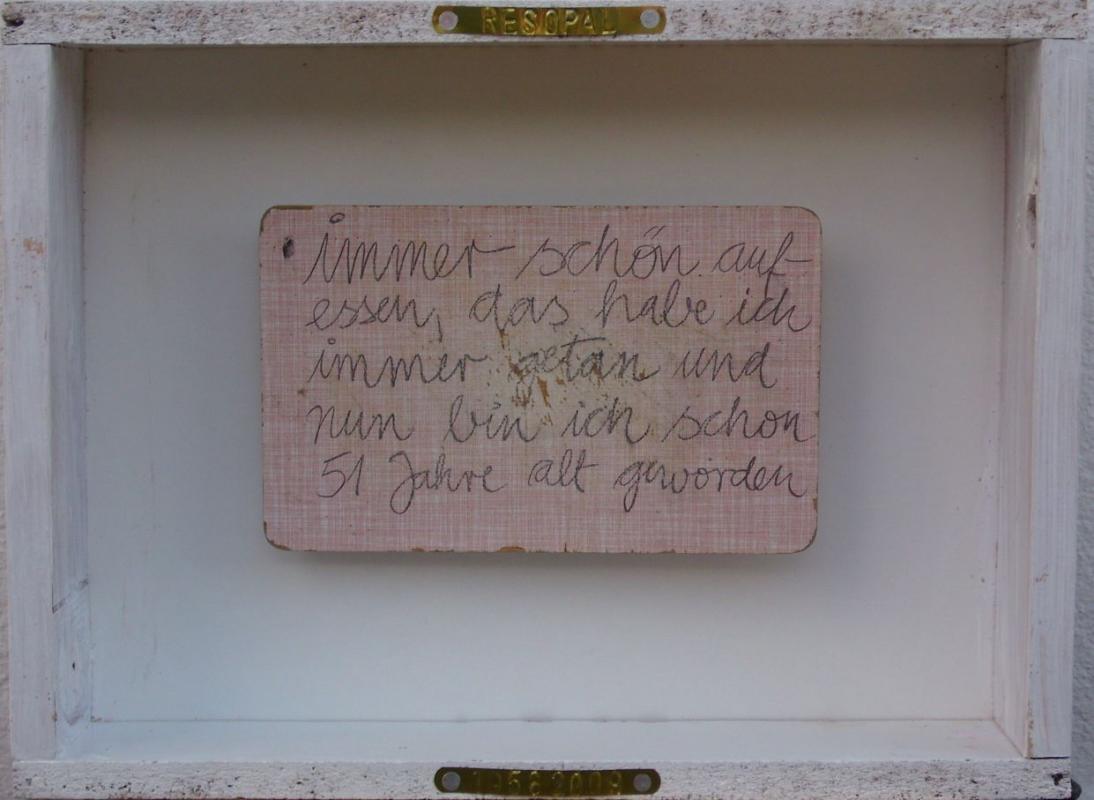 RESOPAL
immer schön auf-
essen, das habe ich
immer getan und
nun bin ich schon
51 Jahre alt geworden
19582009